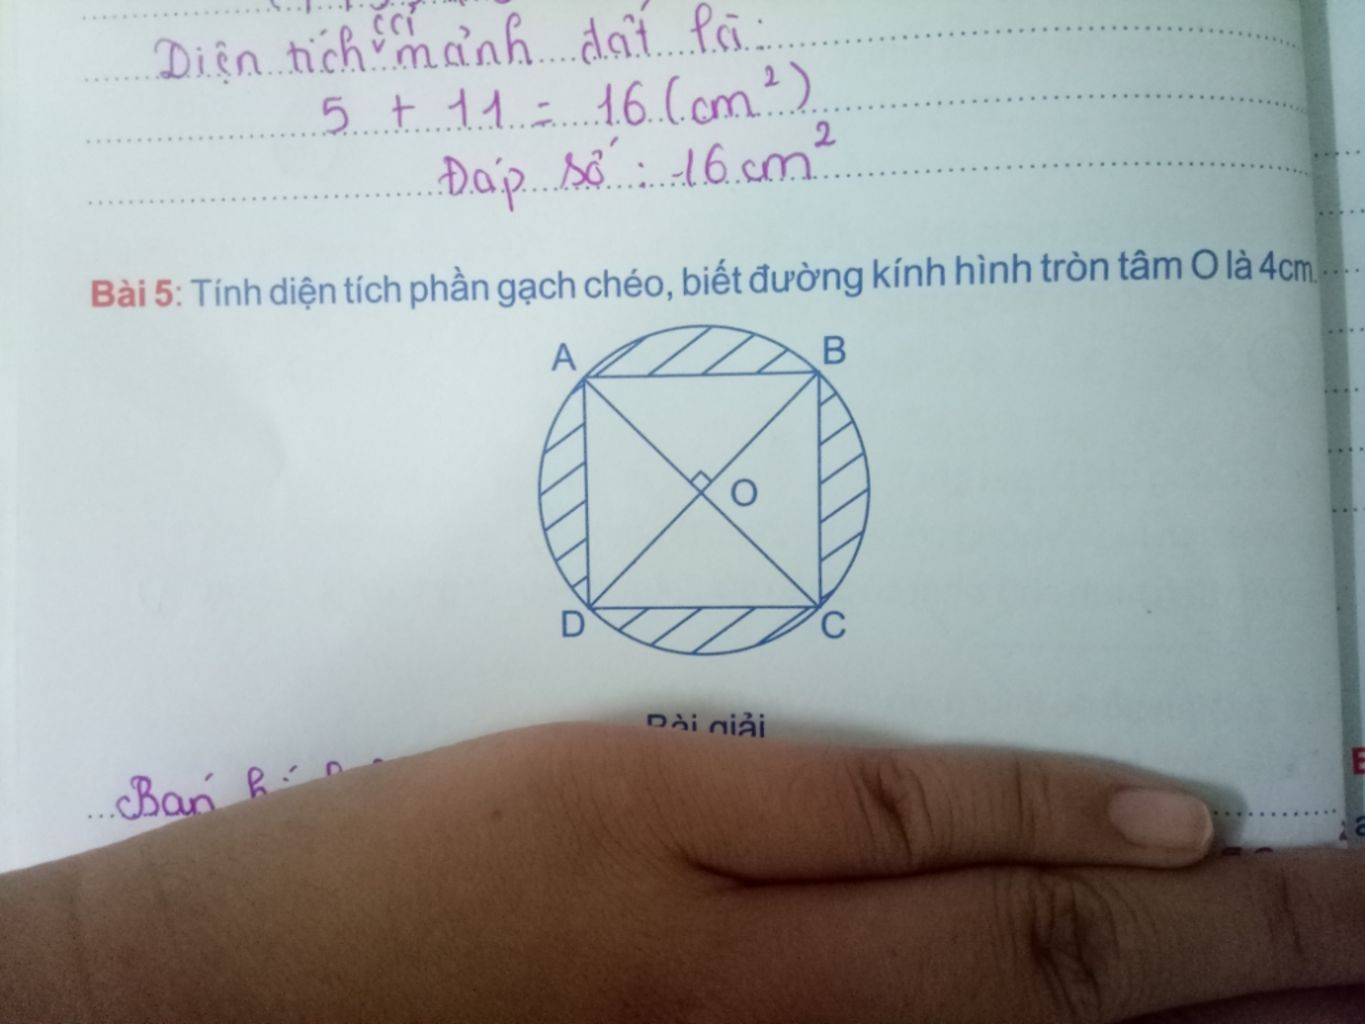 Diện tích cả mảnh đất là:
5 + 11 = 16 (cm²)
Đáp số : 16 cm²
Bài 5: Tính diện tích phần gạch chéo, biết đường kính hình tròn tâm O là 4cm.
A
B
O
D
C
Bài giải
Bán